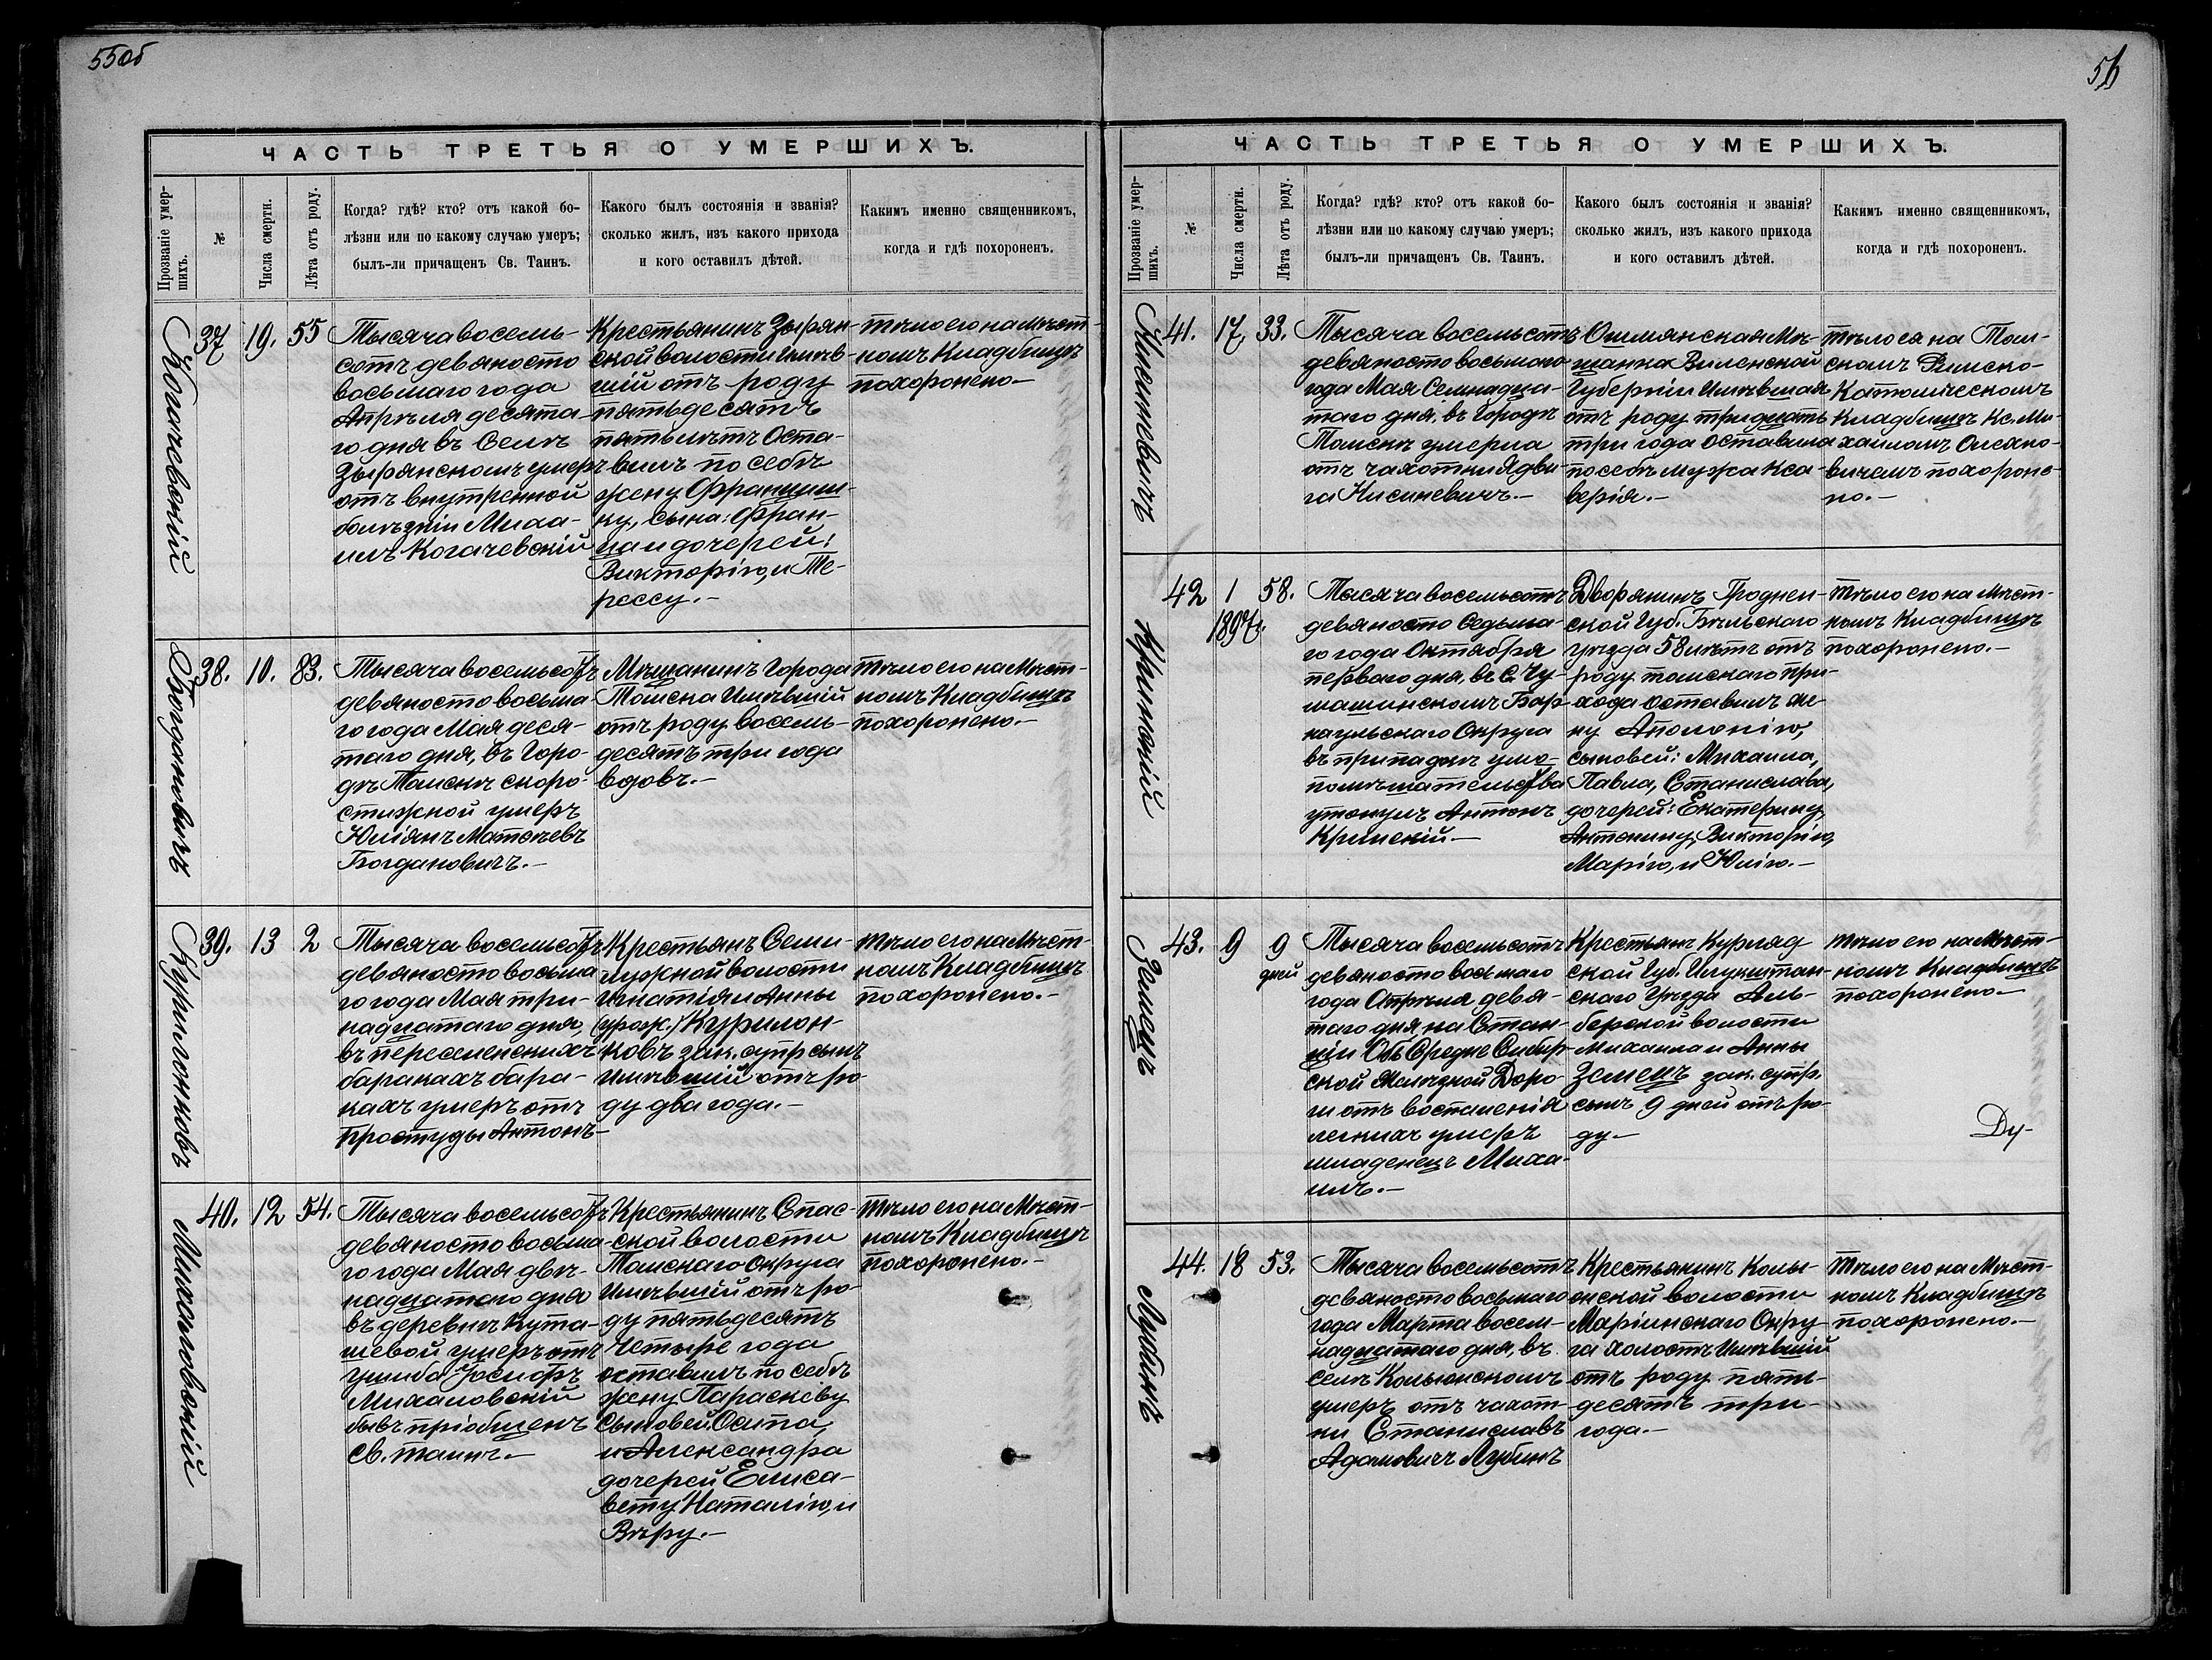 55об
ЧАСТЬ ТРЕТЬЯ О УМЕРШИХЪ.
Прозваніе умер-
шихъ.
№
Числа смерти.
Лѣта отъ роду.
Когда? гдѣ? кто? отъ какой бо-
лѣзни или по какому случаю умеръ;
былъ-ли причащенъ Св. Таинъ.
Какого былъ состоянія и званія?
сколько жилъ, изъ какого прихода
и кого оставилъ дѣтей.
Какимъ именно священникомъ,
когда и гдѣ похороненъ.
Когачевскій
37
19.
55
Тысяча восемь-
сотъ девяносто
восьмаго года
Апрѣля десята-
го дня въ Селѣ
Зырянскомъ умеръ
отъ внутренной
болѣзніи Миха-
илъ Когачевскій
Крестьянинъ Зырян-
ской волости Имѣв-
шій отъ роду
пятьдесятъ
пять лѣтъ Оста-
вилъ по себѣ
жену Францишь-
ку, сына: Фран-
ца и дочерей:
Викторію, и Те-
рессу.-
тѣло его на Мѣст-
номъ Кладбищѣ
похоронено-
Богдановичъ
38.
10.
83.
Тысяча восемьсотъ
девяносто восьма-
го года Мая деся-
таго дня, въ Горо-
дѣ Томскѣ скоро-
стижной умеръ
Юліянъ Матѳѣевъ
Богдановичъ.-
Мѣщанинъ Города
Томска Имѣвшій
отъ роду восемь-
десятъ три года
вдовъ.-
тѣло его на Мѣст-
номъ Кладбищѣ
похоронено.-
Курилонковъ
39.
13
2
Тысяча восемьсотъ
девяносто восьма-
го года Мая три-
надцатаго дня,
въ переселенскихъ
баракахъ бара-
кахъ умеръ отъ
простуды Антонъ-
Крестьянъ Семи-
лужной волости
Игнатія и Анны
(урож.) Курилон-
ковъ зак. супр сынъ
Имѣвшій отъ ро-
ду два года.-
тѣло его на Мѣст-
номъ Кладбищѣ
похоронено.-
Михаловскій
40.
12
54.
Тысяча восемьсотъ
девяносто восьма-
го года Мая двѣ-
надцатаго дня
въ деревнѣ Кута-
шевой умеръ отъ
ушиба Іосифъ
Михаловскій
бывъ пріобщенъ
Св. таинъ.-
Крестьянинъ Спас-
ской волости
Томскаго Округа
Имѣвшій отъ ро-
ду пятьдесятъ
четыре года
оставилъ по себѣ
жену Параскеву
Сыновей: Осипа,
и Александра
дочерей Елиса-
вету, Наталію, и
Вѣру.-
тѣло его на Мѣст-
номъ Кладбищѣ
похоронено.-
56
ЧАСТЬ ТРЕТЬЯ О УМЕРШИХЪ.
Прозваніе умер-
шихъ.
№
Числа смерти.
Лѣта отъ роду.
Когда? гдѣ? кто? отъ какой бо-
лѣзни или по какому случаю умеръ;
былъ-ли причащенъ Св. Таинъ.
Какого былъ состоянія и званія?
сколько жилъ, изъ какого прихода
и кого оставилъ дѣтей.
Какимъ именно священникомъ,
когда и гдѣ похороненъ.
41.
17.
33.
Тысяча восемьсотъ
девяносто восьмаго
года Мая Семнадца-
таго дня, въ Городѣ
Томскѣ умерла
отъ чахотки Ядви-
га Кисиневичъ.-
Ошмянская Мѣ-
щанка Виленской
Губерніи Имѣвшая
отъ роду тридцать
три года Оставила
по себѣ мужа Кса-
верія.-
тѣло ея на Том-
скомъ Римско-
Католическомъ
Кладбищѣ Кс. Ми-
хаиломъ Олехно-
вичемъ похороне-
но.-
Кринскій
42
1
1897г.
58.
Тысяча восемьсотъ
девяносто Седьма-
го года Октября
перваго дня, въ С. Чу-
машинскомъ Бар-
наульскаго Округа
въ припадкѣ умо-
помѣшательства
утонулъ Антонъ
Кринскій-
Дворянинъ Гроднен-
ской Губ. Бѣльскаго
уѣзда 58 лѣтъ отъ
роду томскаго при-
хода оставилъ же-
ну Аполонію,
сыновей: Михаила,
Павла, Станислава,
дочерей: Екатерину,
Антонину, Викторію,
Марію, и Юлію.-
тѣло его на Мѣст-
номъ Кладбищѣ
похоронено.-
Земецъ
43.
9
9
дней
Тысяча восемьсотъ
девяносто восьмаго
года Апрѣля девя-
таго дня на Стан-
ціи Обь Средне Сибир-
ской Желѣзной Доро-
ги отъ воспаленія
легкихъ умеръ
младенецъ Миха-
илъ.-
Крестьянъ Курляд
ской Губ. Иллукштан-
скаго Уѣзда
берской волости
Михаила и Анны
Земецъ зак. супр.
сынъ 9 дней отъ ро-
ду-
тѣло его на Мѣст-
номъ Кладбищѣ
похоронено-
Ду-
Лубинъ
44.
18
53.
Тысяча восемьсотъ
девяносто восьмаго
года Марта восем-
надцатаго дня, въ
селѣ Колыонскомъ
умеръ отъ чахот-
ки Станиславъ
Адамовичъ Лубинъ
Крестьянинъ Колы-
онской волости
Маріинскаго Окру-
га холостъ Имѣвшій
отъ роду пять-
десятъ три-
года.-
тѣло его на Мѣст-
номъ Кладбищѣ
похоронено.-